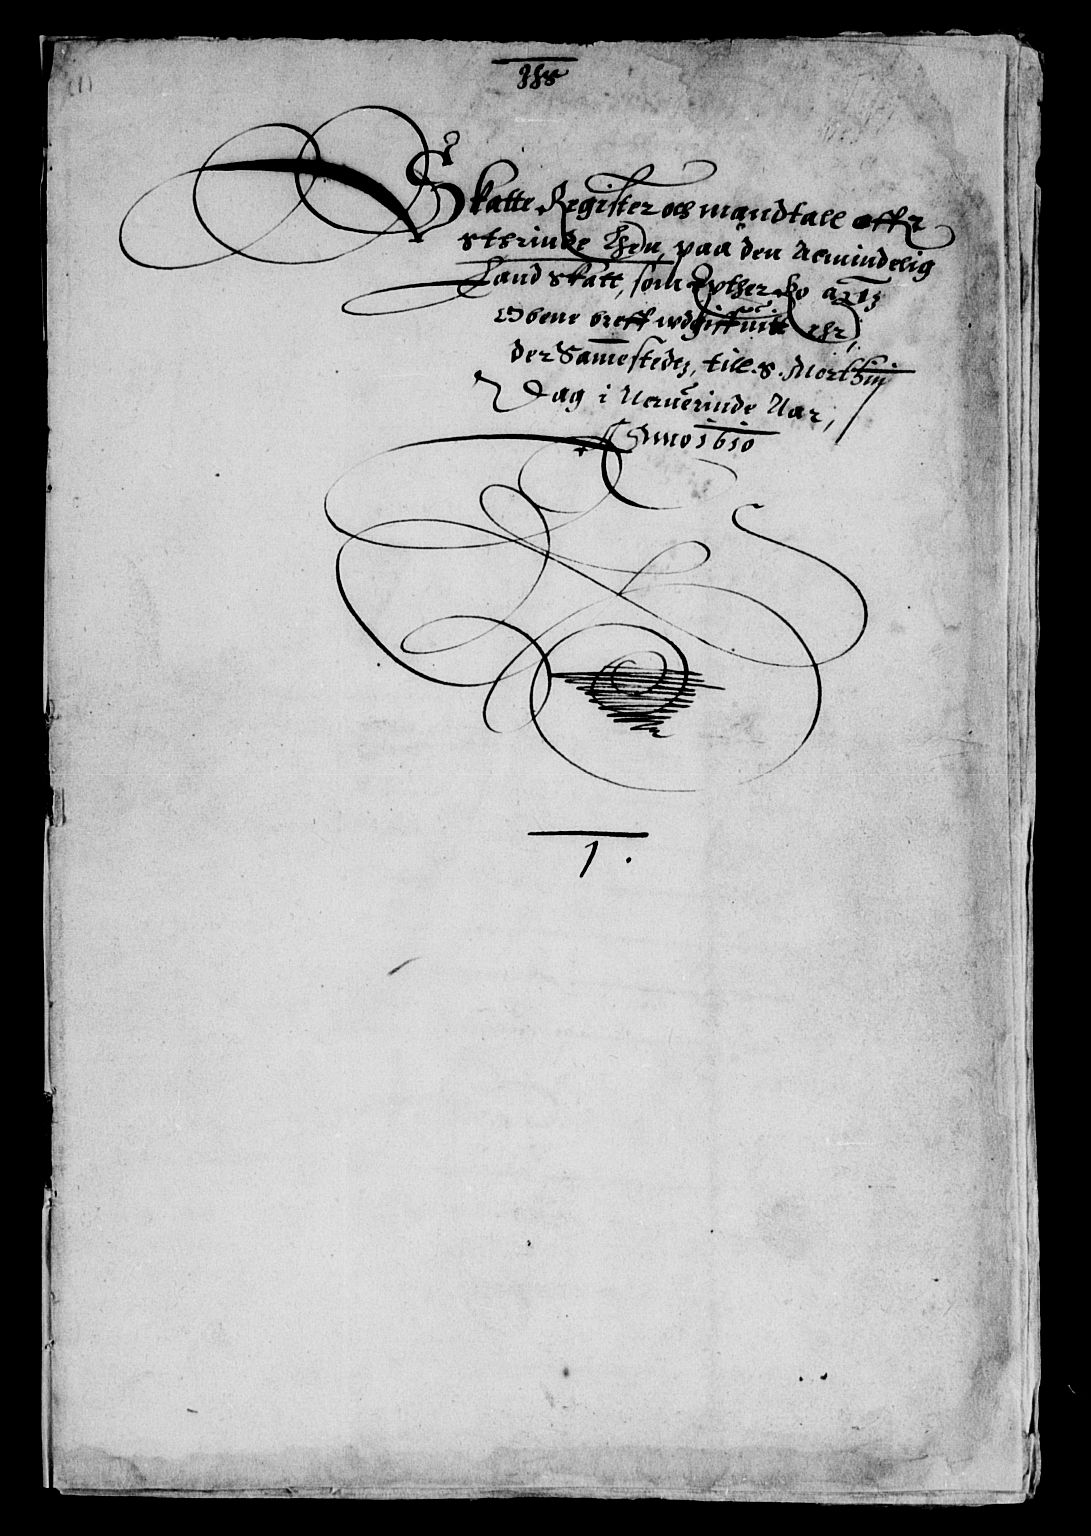 (1)
Jhs
Skatte Register och mandtall offr
sthrinde lhen, paa den Almindelig
Land skatt, som Epther Ko: Maytz
Obene breff wdgiffuitt ehr,
der Sammestedtz, till S. Morthin
Dag i Neruerinde Aar,
Anno 1610
1.